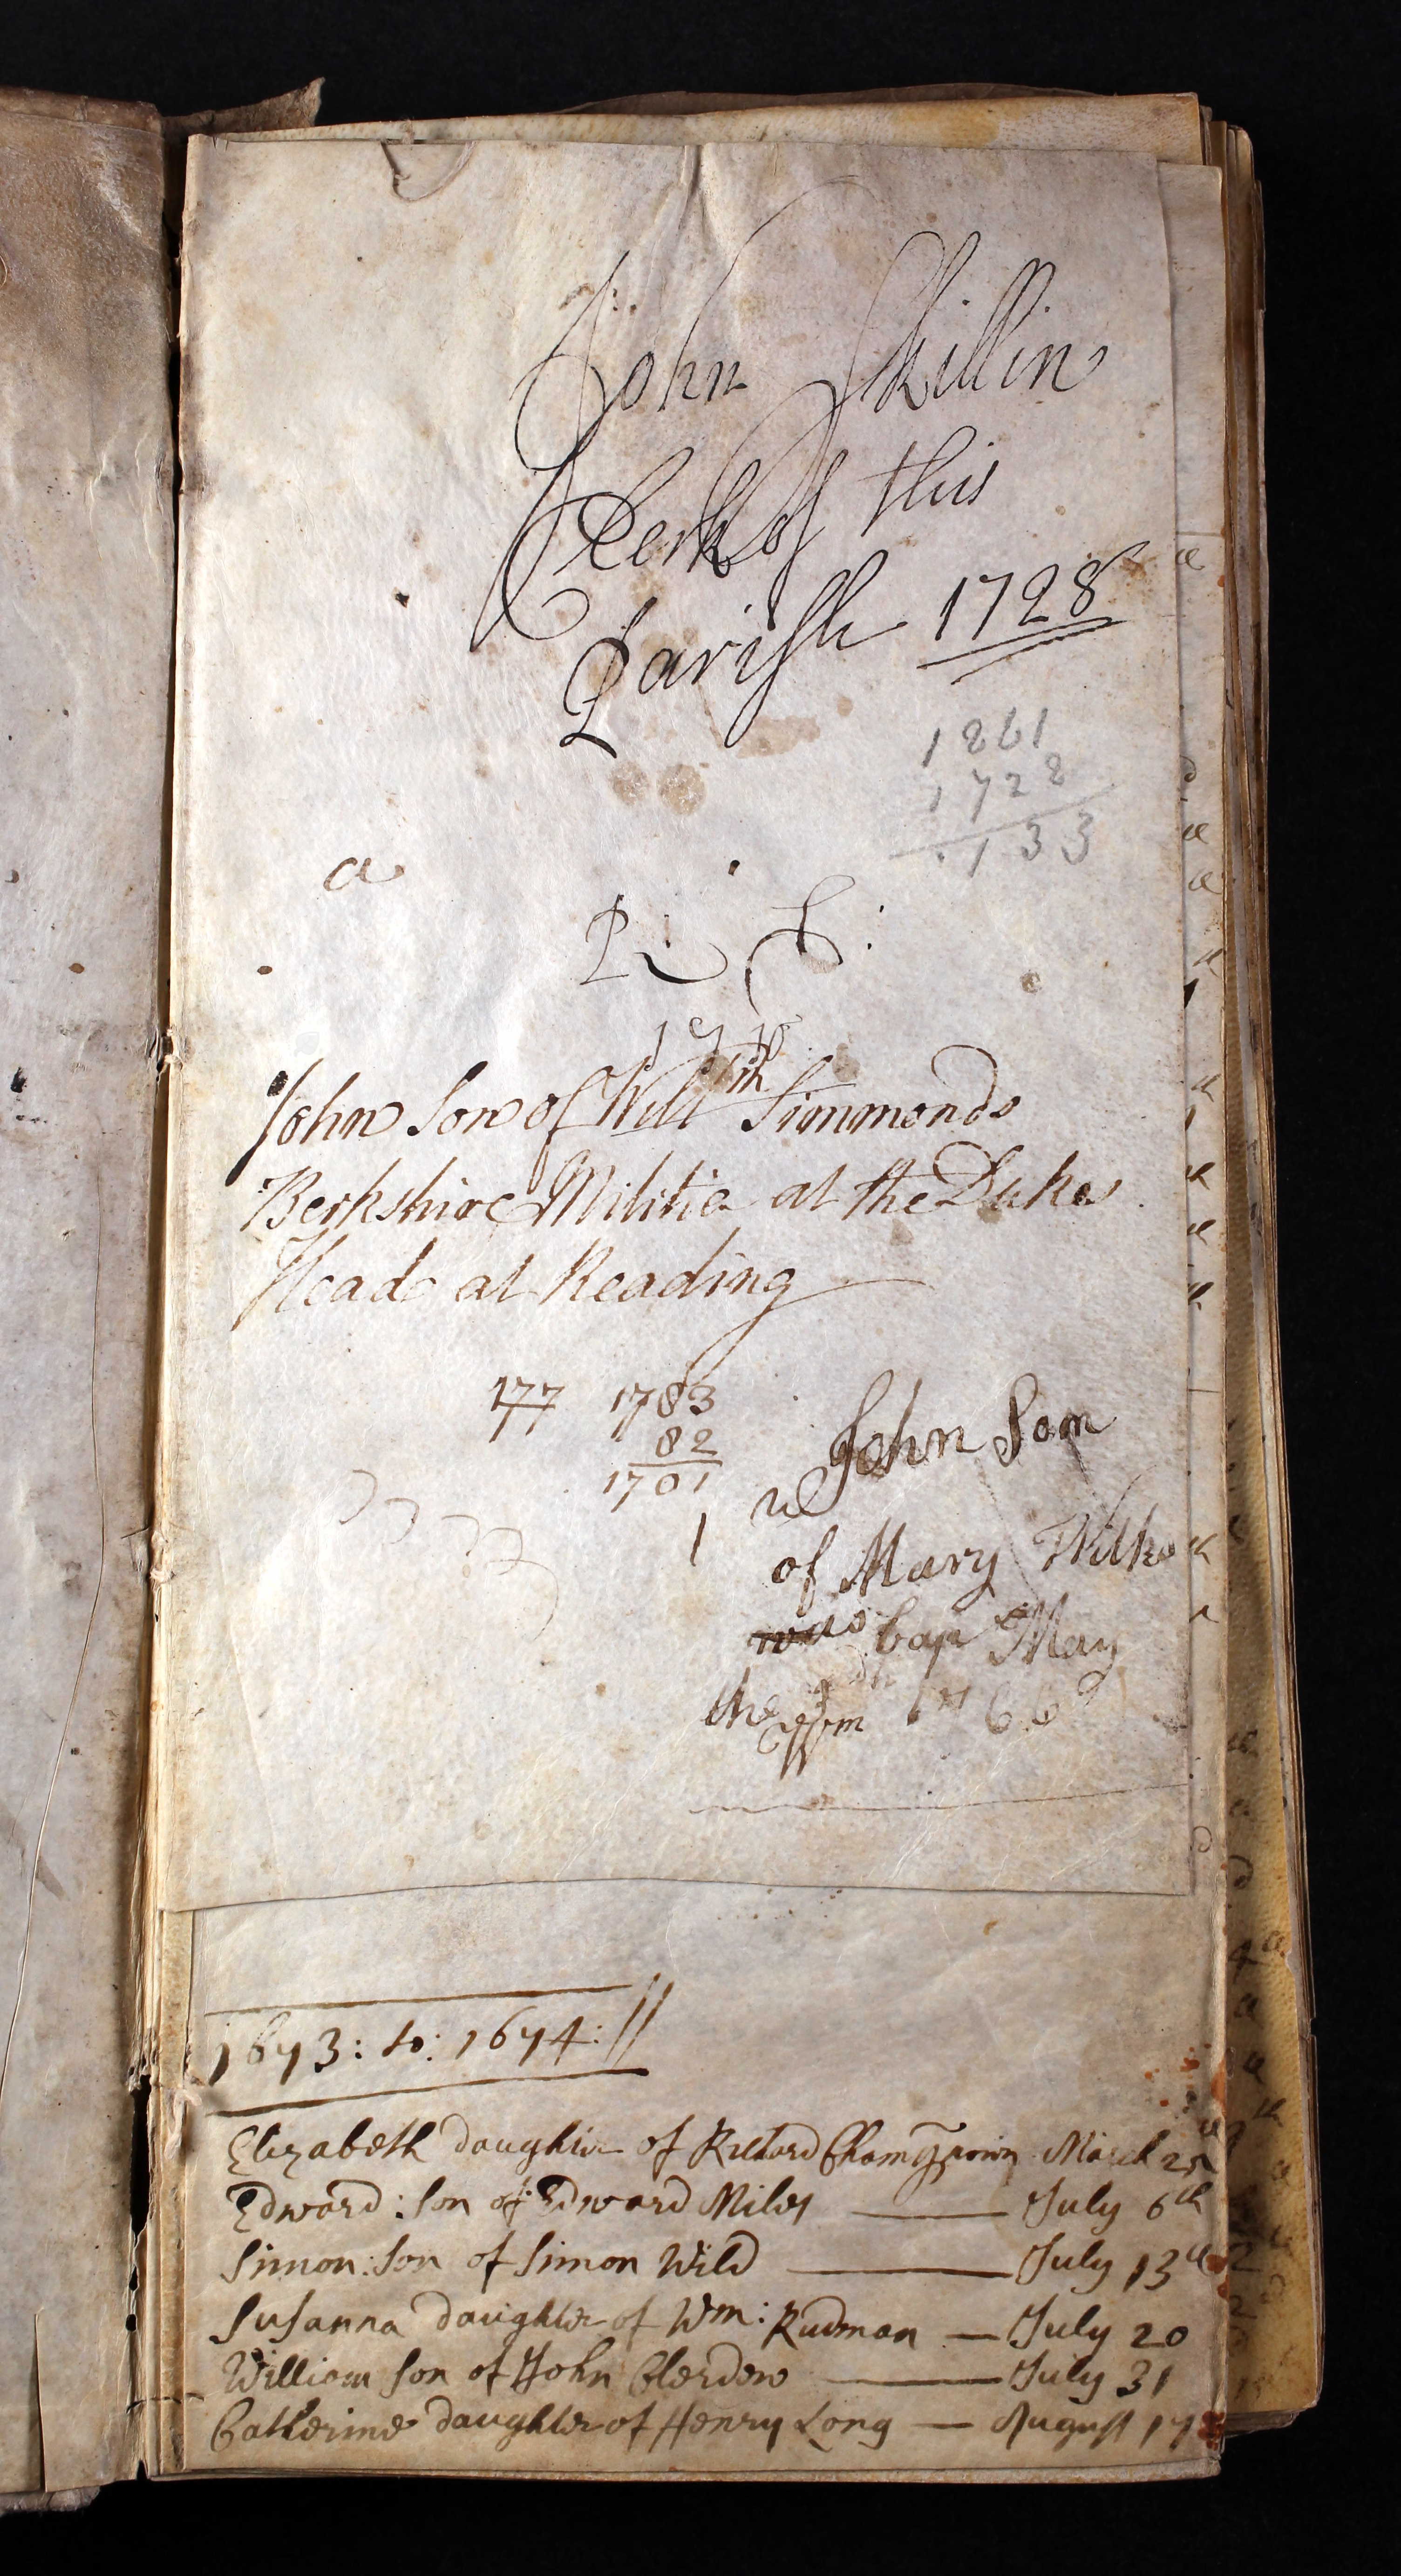 John Skillin
Clerk of this
Parish 1728
1861
1728
133
a
R: S:
John Son of Will^m Simmonds
Berkshire Militia at the Dukes
Head at Reading
177 1783
82
1701
1
John Son
of Mary Wilks
was bap May
the
1673: to: 1674:
Elizabeth daughter of Richard March 25
Edward: son of Edward Miles July 6th
Simon: son of Simon Wild July 13th
Susanna daughter of Wm: Rudman July 20
William son of John Clerdew July 31
Catherine daughter of Henry Long August 17